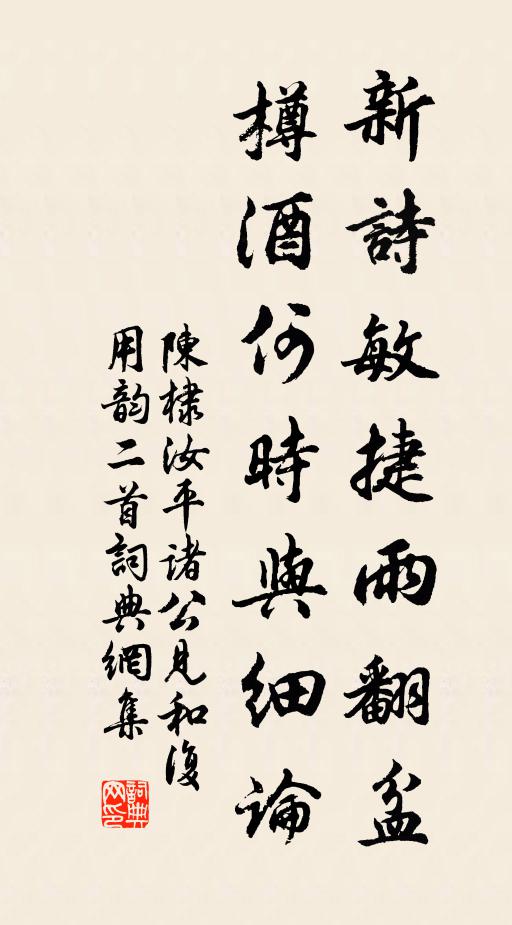 新詩敏捷雨翻盆
樽酒何時與細論
陳棣汝平諸公見和復
用韵二首詞典網集
詞典
网印